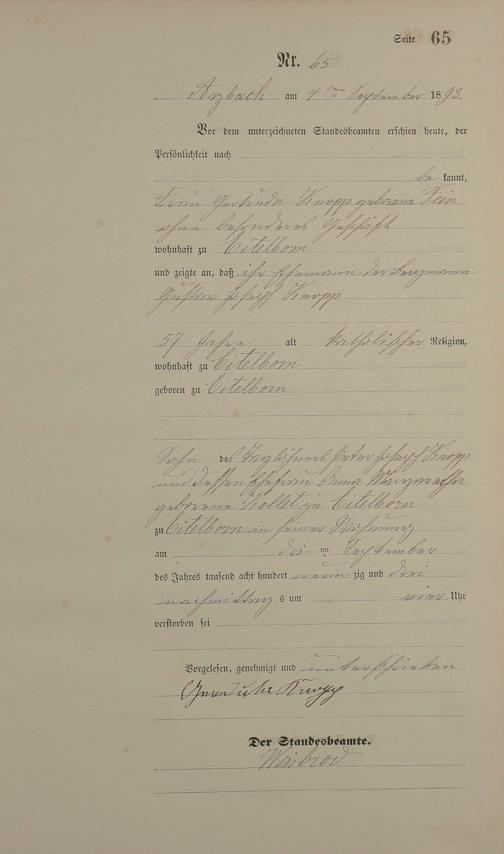 Seite 65
Nr. 65.
Arzbach am 4ten September 1893
Vor dem unterzeichneten Standesbeamten erschien heute, der
Persönlichkeit nach
be kannt,
Frau Gertruda Knopp geborene Fein
ohne besonderes Geschäft
wohnhaft zu Eitelborn
und zeigte an, daß ihr Ehemann der Bergmann
Gustav Joseph Knopp
57 Jahre alt katholischer Religion,
wohnhaft zu Eitelborn
geboren zu Eitelborn
Sohn des Taglöhners Peter Joseph Knopp
und dessen Ehefrau Anna Margaretha
geborene zu Eitelborn
zu Eitelborn in seiner Wohnung
am drei ten September
des Jahres tausend acht hundert neun zig und drei
nachmittag s um vier Uhr
verstorben sei
Vorgelesen, genehmigt und unterschrieben
Gertruda Knopp
Der Standesbeamte.
Weisbrod